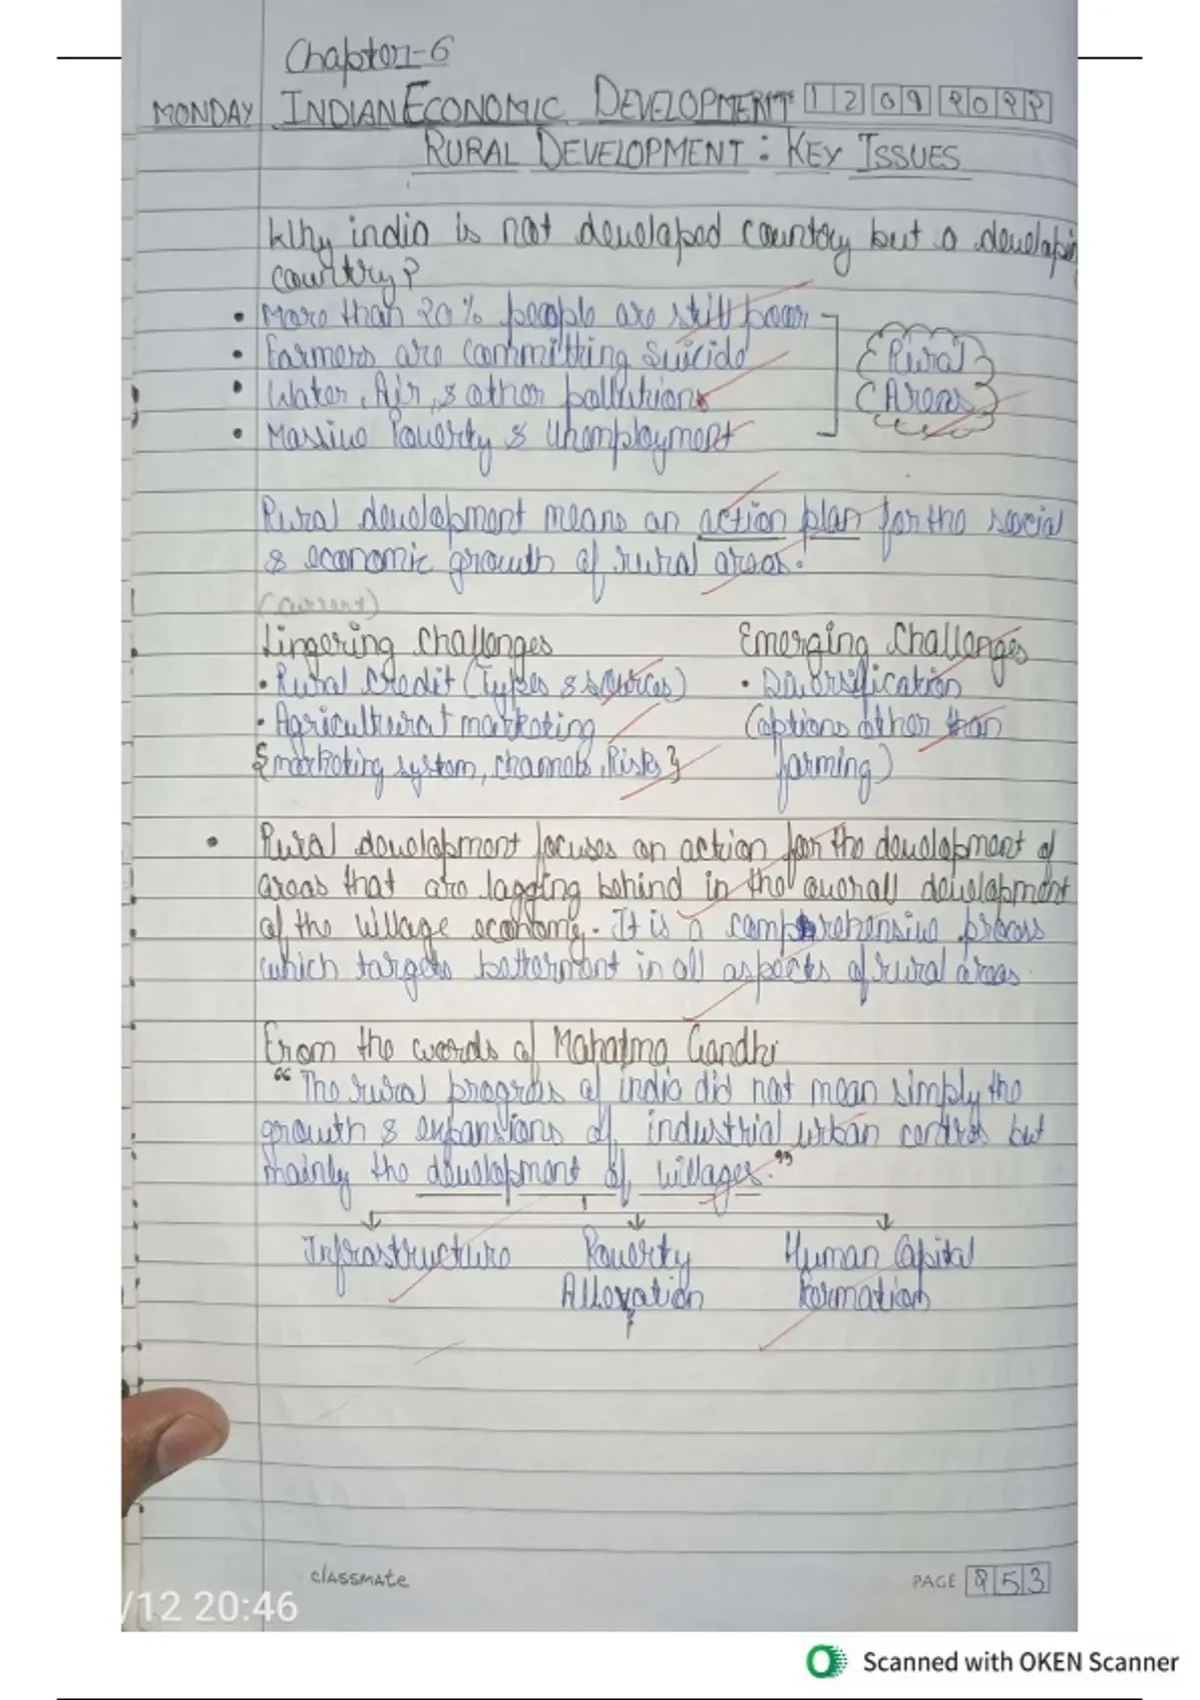 Chapter-6
MONDAY INDIAN ECONOMIC DEVELOPMENT 12 09 2022
RURAL DEVELOPMENT : KEY ISSUES
Why india is not developed country but a developing
country?
• More than 20% people are still poor
• Farmers are committing Suicide
• Water, Air, & other pollutions
• Massive Poverty & Unemployment
Rural
Areas
Rural development means an action plan for the social
& economic growth of rural areas.
(current)
Lingering Challenges
• Rural Credit (Types & sources)
• Agricultural marketing
{marketing system, channels, Risks}
Emerging Challenges
• Diversification
(options other than
farming)
• Rural development focuses on action for the development of
areas that are lagging behind in the overall development
of the village economy. It is a comprehensive process
which targets betterment in all aspects of rural areas.
From the words of Mahatma Gandhi
"The rural progress of india did not mean simply the
growth & expansions of industrial urban centres but
mainly the development of villages."
Infrastructure
Poverty
Allevation
Human Capital
Formation
classmate
PAGE 253
/12 20:46
Scanned with OKEN Scanner